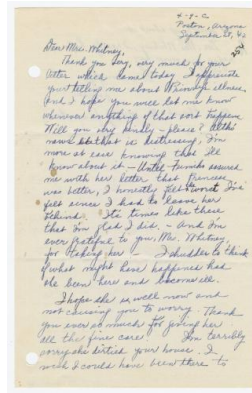 4-9-C
Poston, Arizona
September 25, '42
Dear Mrs. Whitney,
Thank you very, very much for your
letter which came today. I appreciate
your telling me about Francey's illness.
And I hope you will let me know
whenever anything of that sort happens.
Will you very kindly - please? Altho
news like that is distressing, I'm
more at ease knowing that I'll
know about it - Until Fumiko assured
me with her letter that Frances
was better, I honestly felt the worst I've
felt since I had to leave her
behind. It's times like these
that I'm glad I did. - And I'm
ever grateful to you, Mrs. Whitney
for taking her - I shudder to think
of what might have happened had
she been here and become ill.
I hope she is well now and
not causing you to worry. Thank
you ever so much for giving her
all the fine care! I'm terribly
sorry she dirtied your house. I
wish I could have been there to